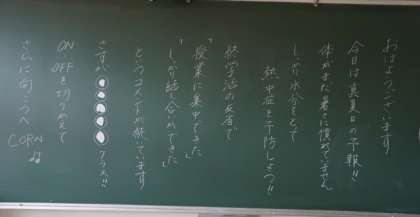 おはようございます
今日は真夏日の予報!!
体がまだ暑さに慣れていません
しっかり水分をとって
熱中症を予防しよう!!
終学活の反省で
「授業に集中できた」
「しっかり話し合いができた」
というコメントが続いています
さすが クラス!!
ON OFFを切りかえて
さらに向こうへ
CORN